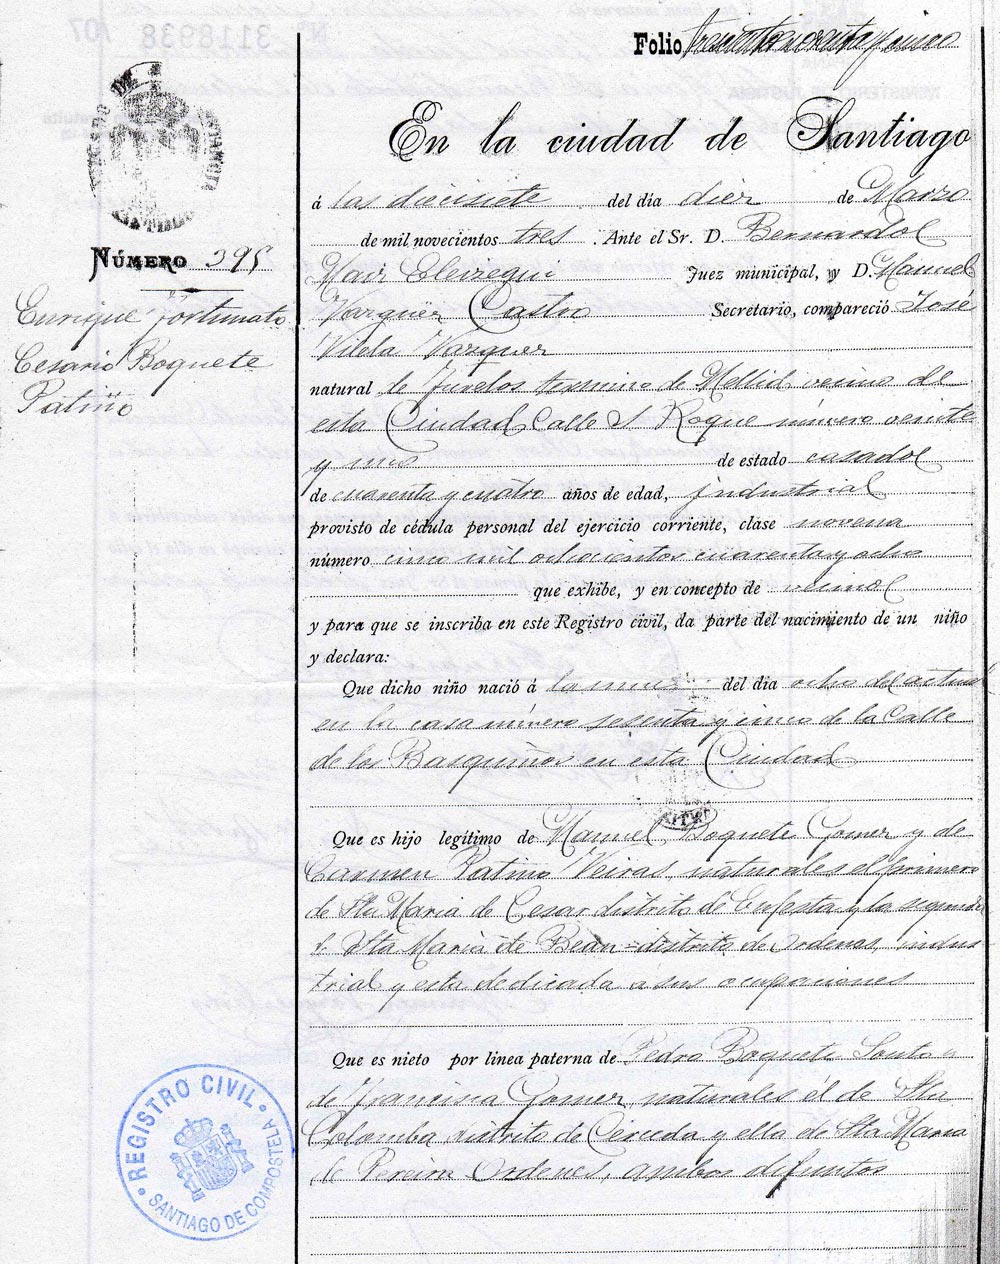 Folio trescientos noventa y cinco
En la ciudad de Santiago
á las diecisiete del dia diez de Marzo
de mil novecientos tres. Ante el Sr. D. Bernardo
NÚMERO 395
Juez municipal, y D. Manuel
Vazquez Castro Secretario, compareció José
Enrique Fortunato
Cesario Boquete
Patiño
Vilela Vazquez
natural de Furelos termino de Mellid vecino de
esta Ciudad Calle S. Roque número veinte
y uno de estado casado
de cuarenta y cuatro años de edad, industrial
provisto de cédula personal del ejercicio corriente, clase novena
número mil ochocientos cuarenta y ocho
que exhibe, y en concepto de vecino
y para que se inscriba en este Registro civil, da parte del nacimiento de un niño
y declara:
Que dicho niño nació á la una del dia ocho del actual
en la casa número sesenta y cinco de la Calle
de los Basquiños en esta Ciudad
Que es hijo legítimo de Manuel Boquete Gomez y de
Carmen Patiño Veiras, naturales el primero
de Sta Maria de Cesar distrito de Enfesta y la segunda
de Sta Maria de Bean distrito de Ordenes, indus
trial y esta dedicada a sus ocupaciones
Que es nieto por línea paterna de Pedro Boquete Souto
de Francisca Gomez, naturales él de Sta
Colomba, distrito de Cerceda y ella de Sta Maria
de Pereira Ordenes, ambos difuntos
REGISTRO CIVIL
SANTIAGO DE COMPOSTELA